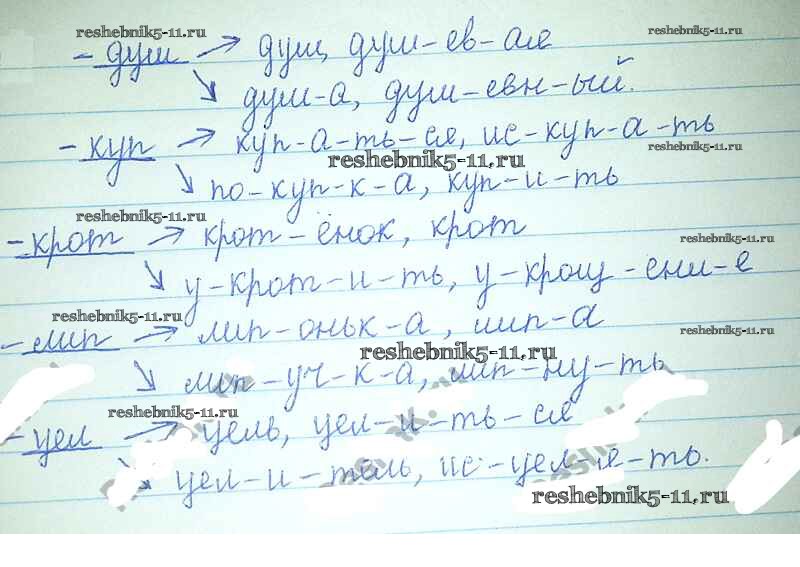 reshebnik5-11.ru reshebnik5-11.ru
- душ → душ, душ-ев-ая
reshebnik5-11.ru
↘ душ-а, душ-евн-ый.
- куп → куп-а-ть-ся, ис-куп-а-ть
reshebnik5-11.ru reshebnik5-11.ru
↘ по-куп-к-а, куп-и-ть
reshebnik5-11.ru
- крот → крот-ёнок, крот
reshebnik5-11.ru
↘ у-крот-и-ть, у-крощ-ени-е
reshebnik5-11.ru
- лип → лип-оньк-а, лип-а
reshebnik5-11.ru reshebnik5-11.ru
↘ лип-уч-к-а, лип-ну-ть
reshebnik5-11.ru
- цел → цель, цел-и-ть-ся
↘ цел-и-тель, ис-цел-я-ть.
reshebnik5-11.ru